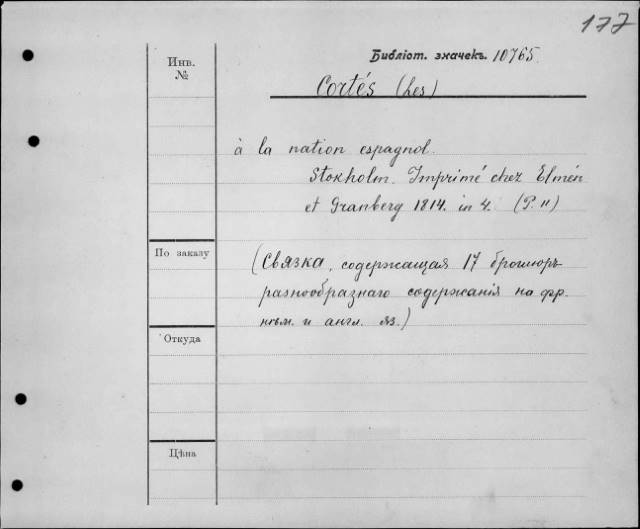 177
Библіот. значекъ. 10765.
Инв.
№
Cortés (Les)
à la nation espagnol.
Stokholm. Imprimé chez Elmén
et Granberg 1814. in 4. (P. 11)
По заказу
(Связка, содержащая 17 брошюръ
разнообразнаго содержанія на фр.
нѣм. и англ. яз.)
Откуда
Цѣна